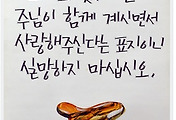 주님이 함께 계시면서
사랑해주신다는 표지이니
실망하지 마십시오.